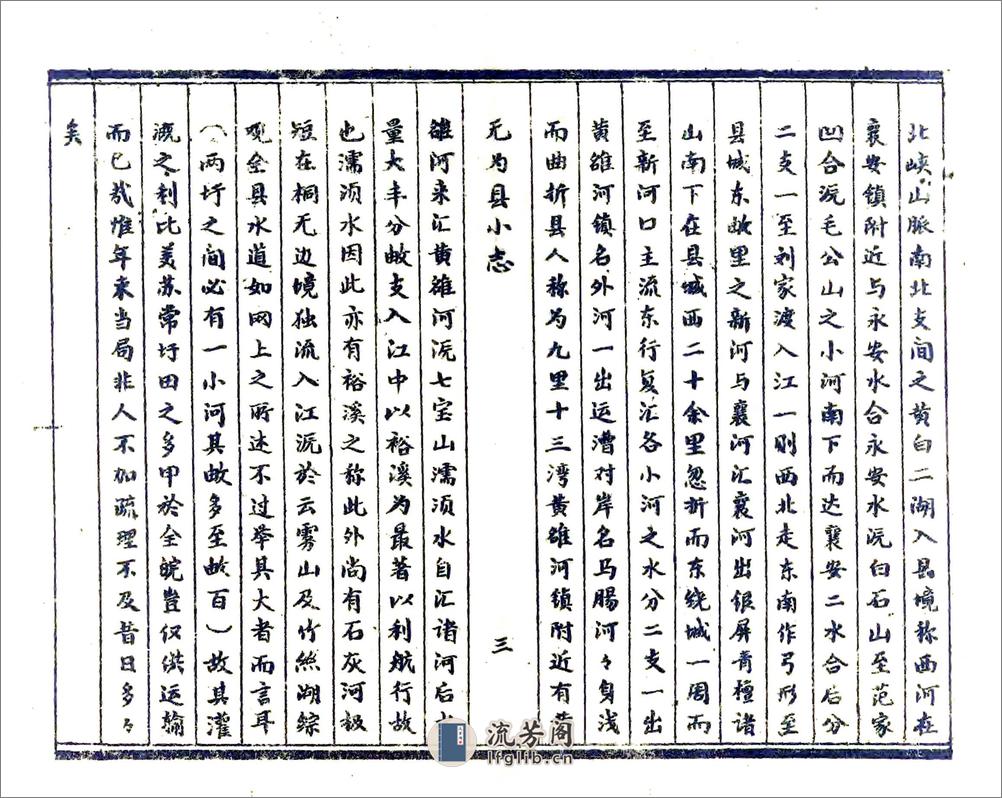 北峡山脈南北支间之黄白二湖入县境称西河在
襄安镇附近与永安水合永安水沅白石山至范家
凹合沅毛公山之小河南下而达襄安二水合后分
二支一至刘家渡入江一则西北走东南作弓形至
县城东数里之新河与襄河汇襄河出银屏青檀诸
山南下在县城西二十余里忽折而东绕城一周而
至新河口主流东行复汇各小河之水分二支一出
黄雒河镇名外河一出运漕对岸名马腸河々身浅
而曲折县人称为九里十三湾黄雒河镇附近有黄
无为县小志 三
雒河来汇黄雒河沅七宝山濡须水自汇诸河后水
量大丰分数支入江中以裕溪为最著以利航行故
也濡须水因此亦有裕溪之称此外尚有石灰河极
短在桐无边境独流入江沅於云雾山及竹丝湖綜
观全县水道如网上之所述不过举其大者而言耳
(两圩之间必有一小河其数多至数百)故其灌
溉之利比美苏常圩田之多甲於全皖豈仅供运输
而已哉惟年来当局非人不加疏理不及昔日多々
矣
流芳阁
lfglib.cn